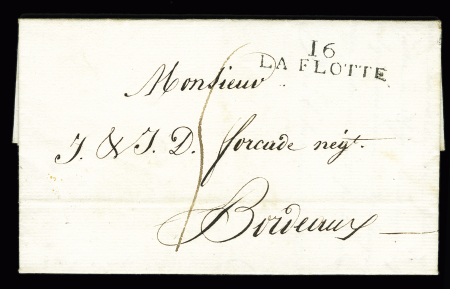 16
LA FLOTTE
Monsieur
J. & J. D. forcade négt.
Bordeaux